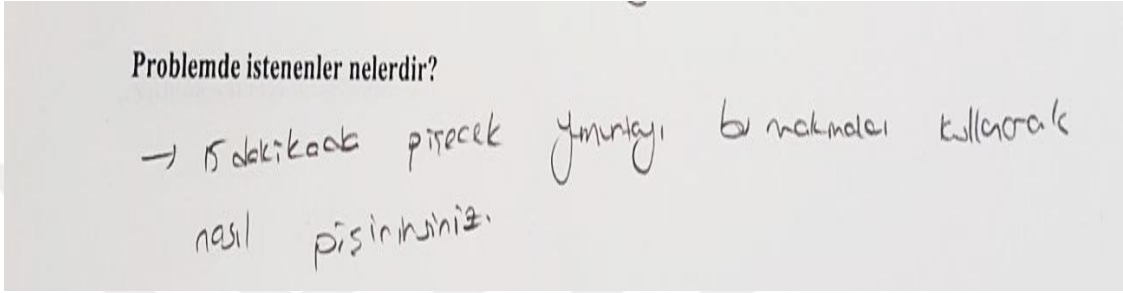 Problemde istenenler nelerdir?
→ 15 dakikada pişecek yumurtayı bu makinaları kullanarak
nasıl pişirirsiniz.